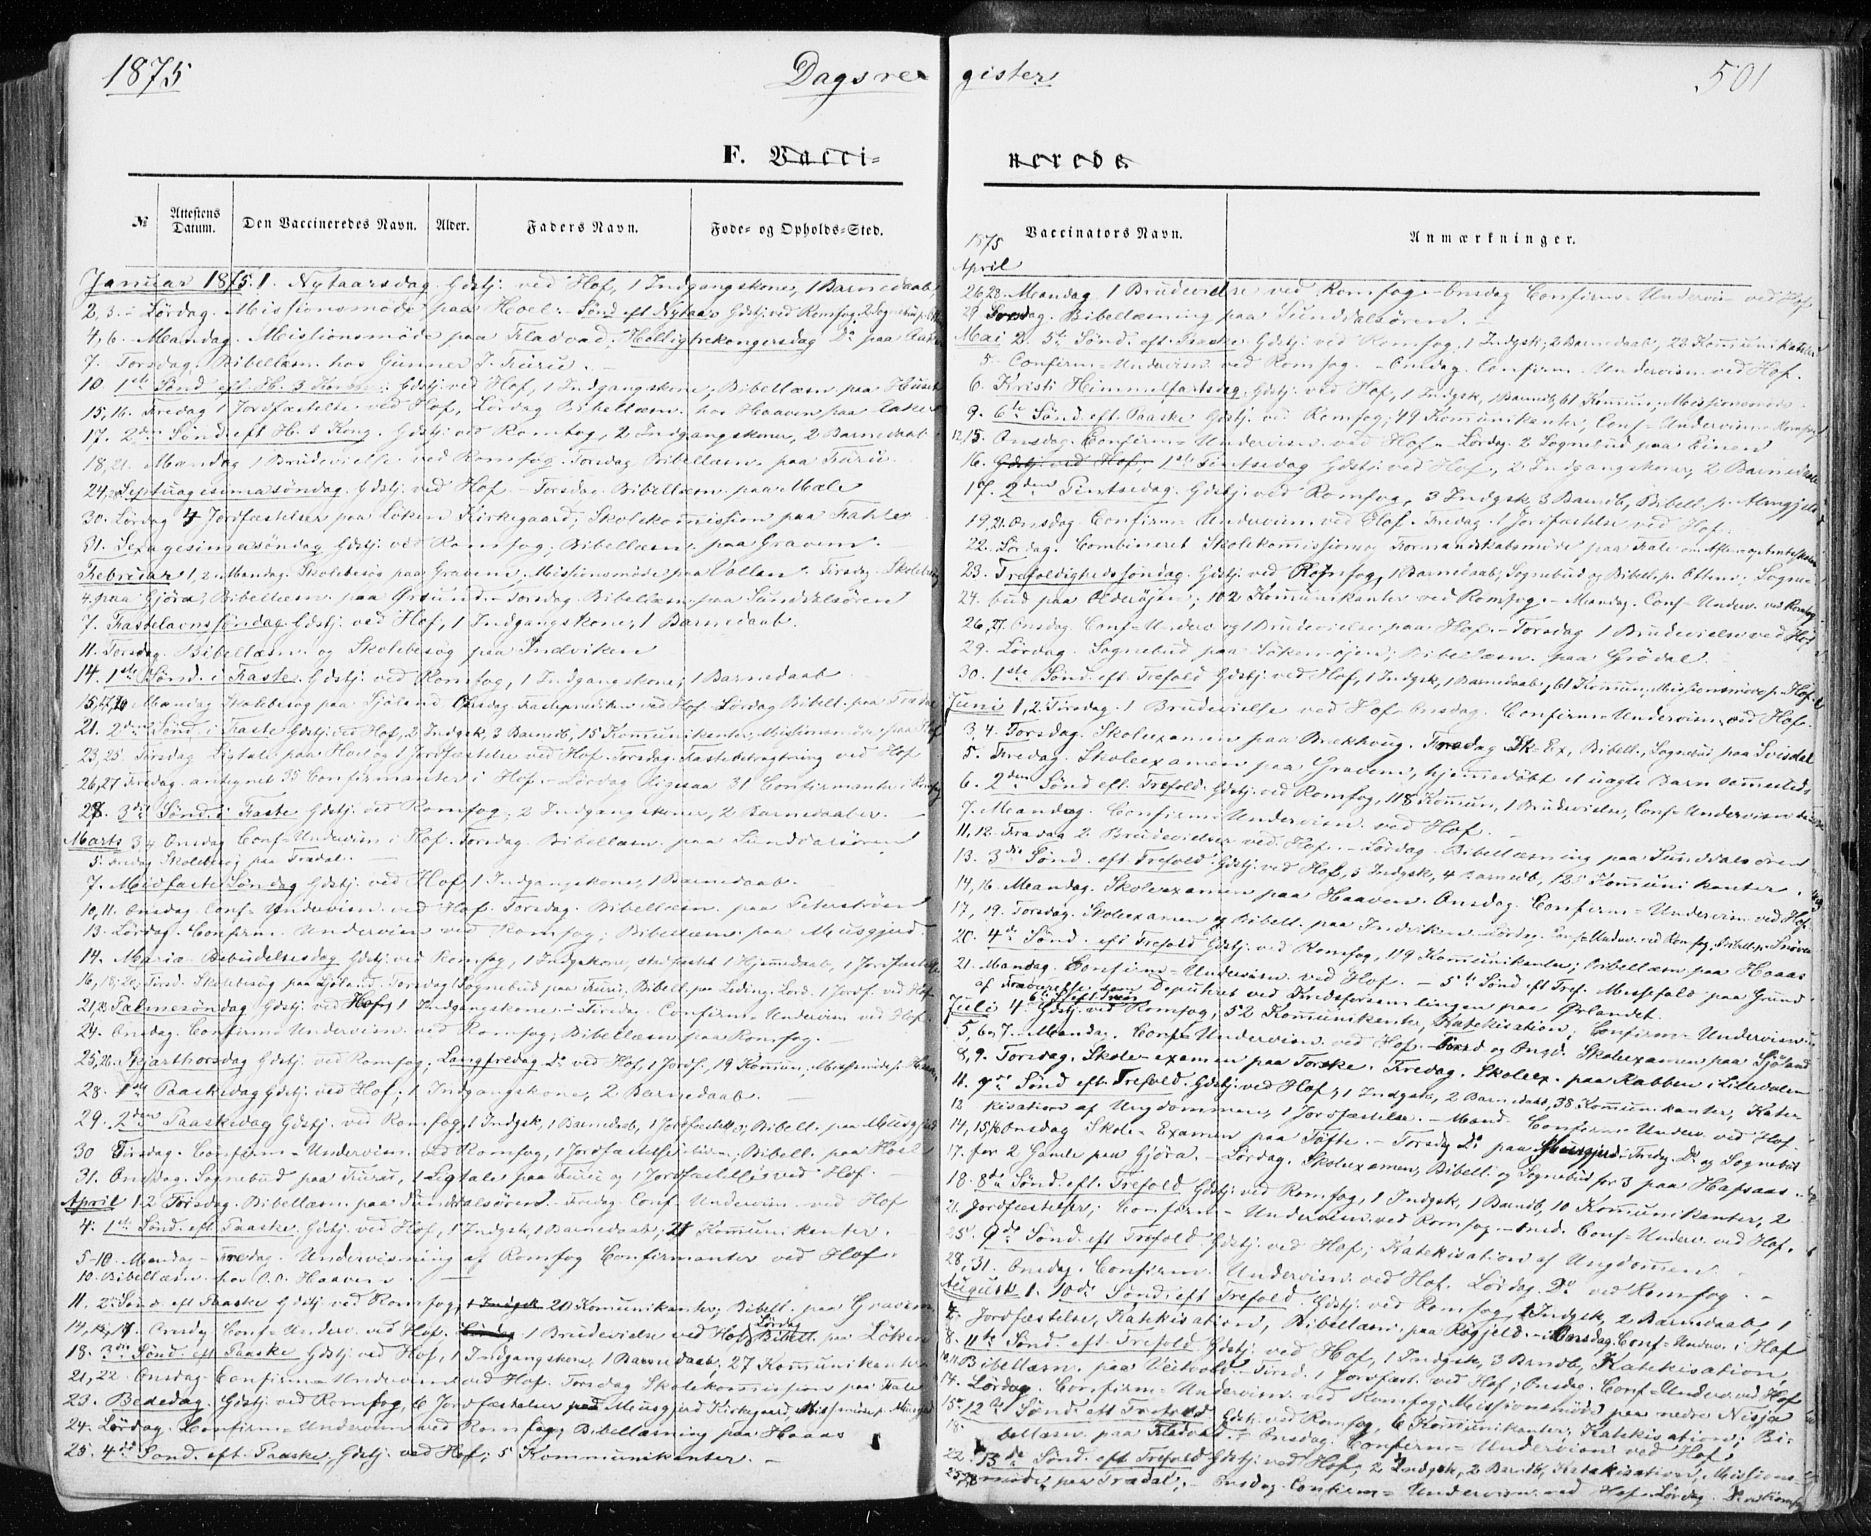 1875
Dagsre-
gister
501
F. Vacci-
nerede.
№
Attestens Datum.
Den Vaccineredes Navn.
Alder.
Faders Navn.
Føde- og Opholds-Sted.
Januar 1875. 1. Nytaarsdag. Gdstj. ved Hof, 1 Indgangskone, 1 Barnedaab,
2, 3. - Lørdag. Missionsmøde paa Hoel. - Sønd eft Nytaar Gdstj. ved Romfog, 2 Sognebud
4, 6. Mandag. Missionsmøde paa Fladvad. Helligtrekongersdag Do paa
7. Torsdag. Bibellæsn. hos Gunner J. Furu. -
10. 1ste Sønd eft. H. 3 Konger. Gdstj. ved Hof, 1 Indgangskone, Bibellæsn. paa
15, 16. Fredag 1 Jordfæstelse ved Hof, Lørdag Bibellæsn. hos Haaven paa
17. 2den Sønd. eft H. 3 Kong. Gdstj. ved Romfog, 2 Indgangskoner, 2 Barnedaab
18, 21. Mandag 1 Brudevielse ved Romfog. Torsdag Bibellæsn. paa Furu.
24. Septuagesimasøndag. Gdstj. ved Hof. - Torsdag. Bibellæsn. paa Mæle
30. Lørdag 4 Jordfæstelser paa Løken Kirkegaard; Skolekomission paa Fahle
31. Sexagesimasøndag Gdstj. ved Romfog; Bibellæsn. paa Gravem. -
Februar 1, 2. Mandag. Skolebesøg paa Gravem. Missionsmøde paa Vollan. Tirsdag. Skolebesøg
4. paa Gjøra, Bibellæsn. paa . Torsdag. Bibellæsn. paa Sundalsøren
7. Fastelavnssøndag. Gdstj. ved Hof, 1 Indgangskone, 1 Barnedaab.
11. Torsdag. Bibellæsn. og Skolebesøg paa Indviken
14. 1ste Sønd. i Faste. Gdstj. ved Romfog, 1 Indgangskone, 1 Barnedaab
15, 17, 20 Mandag Skolebesøg paa Sjøland. Onsdag Fasteprediken ved Hof. Lørdag Bibell. paa
21. 2den Sønd. i Faste Gdstj. ved Hof, 2 Indgsk, 3 Barnedb, 15 Komunikanter, Missionsmøde paa Hof
23, 25. Tirsdag Ligtale paa Hoel og 1 Jordfæstelse ved Hof. Torsdag. Fastebetragtning ved Hof
26, 27 Fredag. antegnet 35 Confirmanter i Hof. - Lørdag Ligesaa 31 Confirmanter i Romfog
28. 3die Sønd. i Faste Gdstj. ved Romfog, 2 Indgangskoner, 2 Barnedaaber. -
Marts 3, 4 Onsdag Conf-Undervisn i Hof. Torsdag. Bibellæsn. paa Sunddalsøren
5. Fredag Skolebesøg paa Fredal. -
7. Midfaste Søndag Gdstj. ved Hof, 1 Indgangskone, 1 Barnedaab. -
10, 11. Onsdag. Conf-Undervisn. ved Hof. Torsdag. Bibellæsn. paa
13. Lørdag. Confirm. Undervisn ved Romfog; Bibellæsn. paa Musgjerd. -
14. Maria Bebudelsesdag Gdstj. ved Romfog, 1 Indgskone, stadfæstet 1 Hjemedaab, 1 Jordfæstelse
16, 18, 20. Tirsd. Skolebesøg paa Sjøland. Torsdag Sognebud paa Furu; Bibell. paa Leding. Lord. 1 Jordf. ved Hof
21, 23. Palmesøndag Gdstj. ved Hof, 1 Indgangskone. - Tirsdag. Confirm-Undervisn ved Hof.
24. Onsdag. Confirm. Undervisn. ved Romfog; Bibellæsn. paa Romfog. -
25, 26. Skjærthorsdag Gdstj. ved Romfog; Langfredag. Do ved Hof, 1 Jordf. 19 Komun;
28. 1ste Paaskedag Gdstj. ved Hof; 1 Indgangskone, 2 Barnedaab. -
29. 2den Paaskedag Gdstj. ved Romfog, 1 Indgsk, 1 Barnedaab, 1 Jordfæstelse, Bibell. paa Musgjerd
30 Tirsdag. Confirm-Undervisn ved Romfog, 1 Jordfæstelse ; Bibell. paa Hoel
31. Onsdag. Sognebud paa Furu, 1 Ligtale paa Furu og 1 Jordfæstelse ved Hof
April 1, 2 Torsdag. Bibellæsn. paa Sundalsøren. Fredag Conf. Undervisn. ved Hof
4. 1ste Sønd. eft. Paaske. Gdstj. ved Hof, 1 Indgsk, 1 Barnedaab, 21 Komunikanter.
5-10. Mandag - Fredag. Undervisning af Romfog Confirmanter ved Hof.
10. Bibellæsn. hos O. O. Haaven. -
11. 2den Sønd eft Paaske Gdstj. ved Romfog, 1 Indgsk 20 Komunikanter; Bibell. paa Gravem.
14, 15, 17. Onsdag Conf-Underv. ved Hof. Lørdag 1 Brudevielse ved Hof. Lørdag Bibell. paa Løken
18. 3die Sønd. eft Paaske Gdstj. ved Hof, 1 Indgangskone, 1 Barnedaab, 27 Komunikanter
21, 22. Onsdag Confirm-Undervisn ved Hof. Torsdag Skolekomission paa Fale
23. Bededag. Gdstj. ved Romfog, 6 Jordfæstelser paa Musgjerd Kirkegaard,
24. Lørdag. Confirm-Undervisn ved Romfog; Bibellæsning paa Haaas
25. 4de Sønd. eft. Paaske. Gdstj. ved Hof; 5 Kommunikanter. -
Vaccinators Navn.
Anmærkninger.
1875
April
26, 28. Mandag 1 Brudevielse ved Romfog. - Onsdag Confirm-Undervisn ved Hof.
29. Torsdag. Bibellæsning paa Sunddalsøren. -
Mai 2. 5te Sønd. eft. Paaske. Gdstj. ved Romfog, 1 Indgsk; 2 Barnedaab, 23 Komunikanter
5. Confirm-Undervisn ved Romfog. - Onsdag. Confirm. Undervisn. ved Hof.
6. Kristi Himmelfartsdag. Gdstj. ved Hof, 1 Indgsk, 1 Barndb, 61 Komun, Missionsmøde.
9. 6te Sønd. eft. Paaske Gdstj. ved Romfog; 49 Komunikanter, Conf-Undervisn
12, 15. Onsdag. Confirm-Undervisn. ved Hof. - Lørdag. 2 Sognebud paa Einen
16. Gdstj. ved Hof, 1ste Pintsedag Gdstj. ved Hof, 2 Indgangskoner, 2 Barnedaab
17. 2den Pintsedag. Gdstj. ved Romfog, 3 Indgsk, 3 Barndb, Bibell. p. Almgjeld
19, 21. Onsdag. Confirm-Undervisn. ved Hof. Fredag. 1 Jordfæstelse ved Hof.
22. Lørdag. Combineret Skolekomissions og Formandskabsmøde paa Fale
23. Trefoldighedssøndag. Gdstj. ved Romfog, 1 Barnedaab, Sognebud og Bibell. p. Ottem. Sogne-
24. bud paa Olderøjen; 102 Komunikanter ved Romfog. - Mandag. Conf-Underv. ved Romfog
26, 27. Onsdag Conf-Underv og 1 Brudevielse paa Hof. - Torsdag 1 Brudevielse ved Hof
29. Lørdag. Sognebud paa Løkenøjen; Bibellæsn. paa Grødal.
30. 1ste Sønd. eft. Trefold Gdstj. ved Hof, 1 Indgsk, 1 Barnedaab, 61 Komun, Missionsmøde p. Hof
Juni 1, 2. Tirsdag. 1 Brudevielse ved Hof. Onsdag. Confirm-Undervisn. ved Hof.
3, 4. Torsdag. Skoleexamen paa Brækhaug. Fredag Sk-Ex, Bibell., Sognebud paa Svisdal
5. Fredag. Skoleexamen paa Gravem, hjemedøbt et uægte Barn sammesteds
6. 2den Sønd eft. Trefold. Gdstj. ved Romfog, 118 Komun, 1 Brudevielse, Conf-Undervisn
7. Mandag. Confirm-Undervisn. ved Hof. -
11, 12. Fredag 2 Brudevielser ved Hof. - Lørdag. Bibellæsning paa Sunddalsøren
13. 3die Sønd. eft. Trefold. Gdstj. ved Hof, 3 Indgsk, 4 Barndb, 12 Komunikanter.
14, 16. Mandag. Skoleexamen paa Haaven. Onsdag. Confirm-Undervisn. ved Hof.
17, 19. Torsdag. Skoleexamen og Bibell. paa Indviken. - Lørdag. Conf-Underv. ved Romfog, Bibell. p.
20. 4de Sønd. eft Trefold Gdstj. ved Romfog, 119 Komunikanter; Bibellæsn paa Haaas
21. Mandag. Confirm-Undervisn. ved Hof. - 5te Sønd eft Tref. Messefald paa Grund
af Fraværelse som Deputeret ved Kredsforsamlingen paa Ørlandet.
Juli 4. 6te Sønd eft Tref Gdstj. ved Romfog; 52 Komunikanter, Katekisation; Confirm-Undervisn.
5, 6, 7. Mandag. Conf-Undervisn. ved Hof. Tirsd og Onsd. Skoleexamen paa Sjøland
8, 9. Torsdag. Skole-examen paa Torske. Fredag. Skoleex. paa Rabben i Litledalen
11. 7de Sønd eft. Trefold. Gdstj. ved Hof; 1 Indgsk, 2 Barnedaab, 38 Komunikanter, Kate-
12 kisation af Ungdommen, 1 Jordfæstelse. - Mand. Confirm-Underv. ved Hof.
14, 15, 16 Onsdag Skole-Examen paa Tofte. - Torsdag Do paa Musgjerd. Fredag. Do og Sognebud
17. for 2 Gamle paa Gjøra. - Lørdag. Skoleexamen, Bibell. og Sognebud for 3 paa Hafsaas.
18. 8de Sønd. eft. Trefold. Gdstj. ved Romfog, 1 Indgsk, 1 Barndb, 10 Komunikanter, 2
21. Jordfæstelser; Confirm-Undervisn. ved Romfog. - Onsd. Conf-Underv. ved Hof.
25. 9de Sønd. eft Trefold Gdstj. ved Hof; Katekisation af Ungdommen
28, 31. Onsdag. Confirm. Undervisn. ved Hof. Lørdag. Do ved Romfog. -
August 1. 10de Sønd. eft Trefold. Gdstj. ved Romfog, 1 Indgsk, 2 Barnedaab, 1
4. Jordfæstelse, Katekisation, Bibellæsn. paa Røgjeld. - Onsdag. Conf-Underv. i Hof
8. 11te Sønd. eft. Trefold Gdstj. ved Hof, 1 Indgsk, 3 Barndb, Katekisation,
Bibellæsn. paa . Tirsd. 1 Jordfæst. ved Hof; Onsdag. Conf-Underv. ved Hof
14. Lørdag. Confirm-Undervisn. ved Romfog; Missionsmøde paa nedre Nisja
15. 12te Sønd. eft Trefold Gdstj. ved Romfog, 6 Komunikanter; Katekisation; Bi-
18. bellæsn. paa Fladvad. - Onsdag. Confirm-Undervisn ved Hof.
22. 13de Sønd. eft Trefold Gdstj. ved Hof, 2 Indgsk, 2 Barndb, Katekisation, Missions-
25, 28 møde paa Fredal. - Onsdag. Confirm-Undervisn. ved Hof. Lørdag.